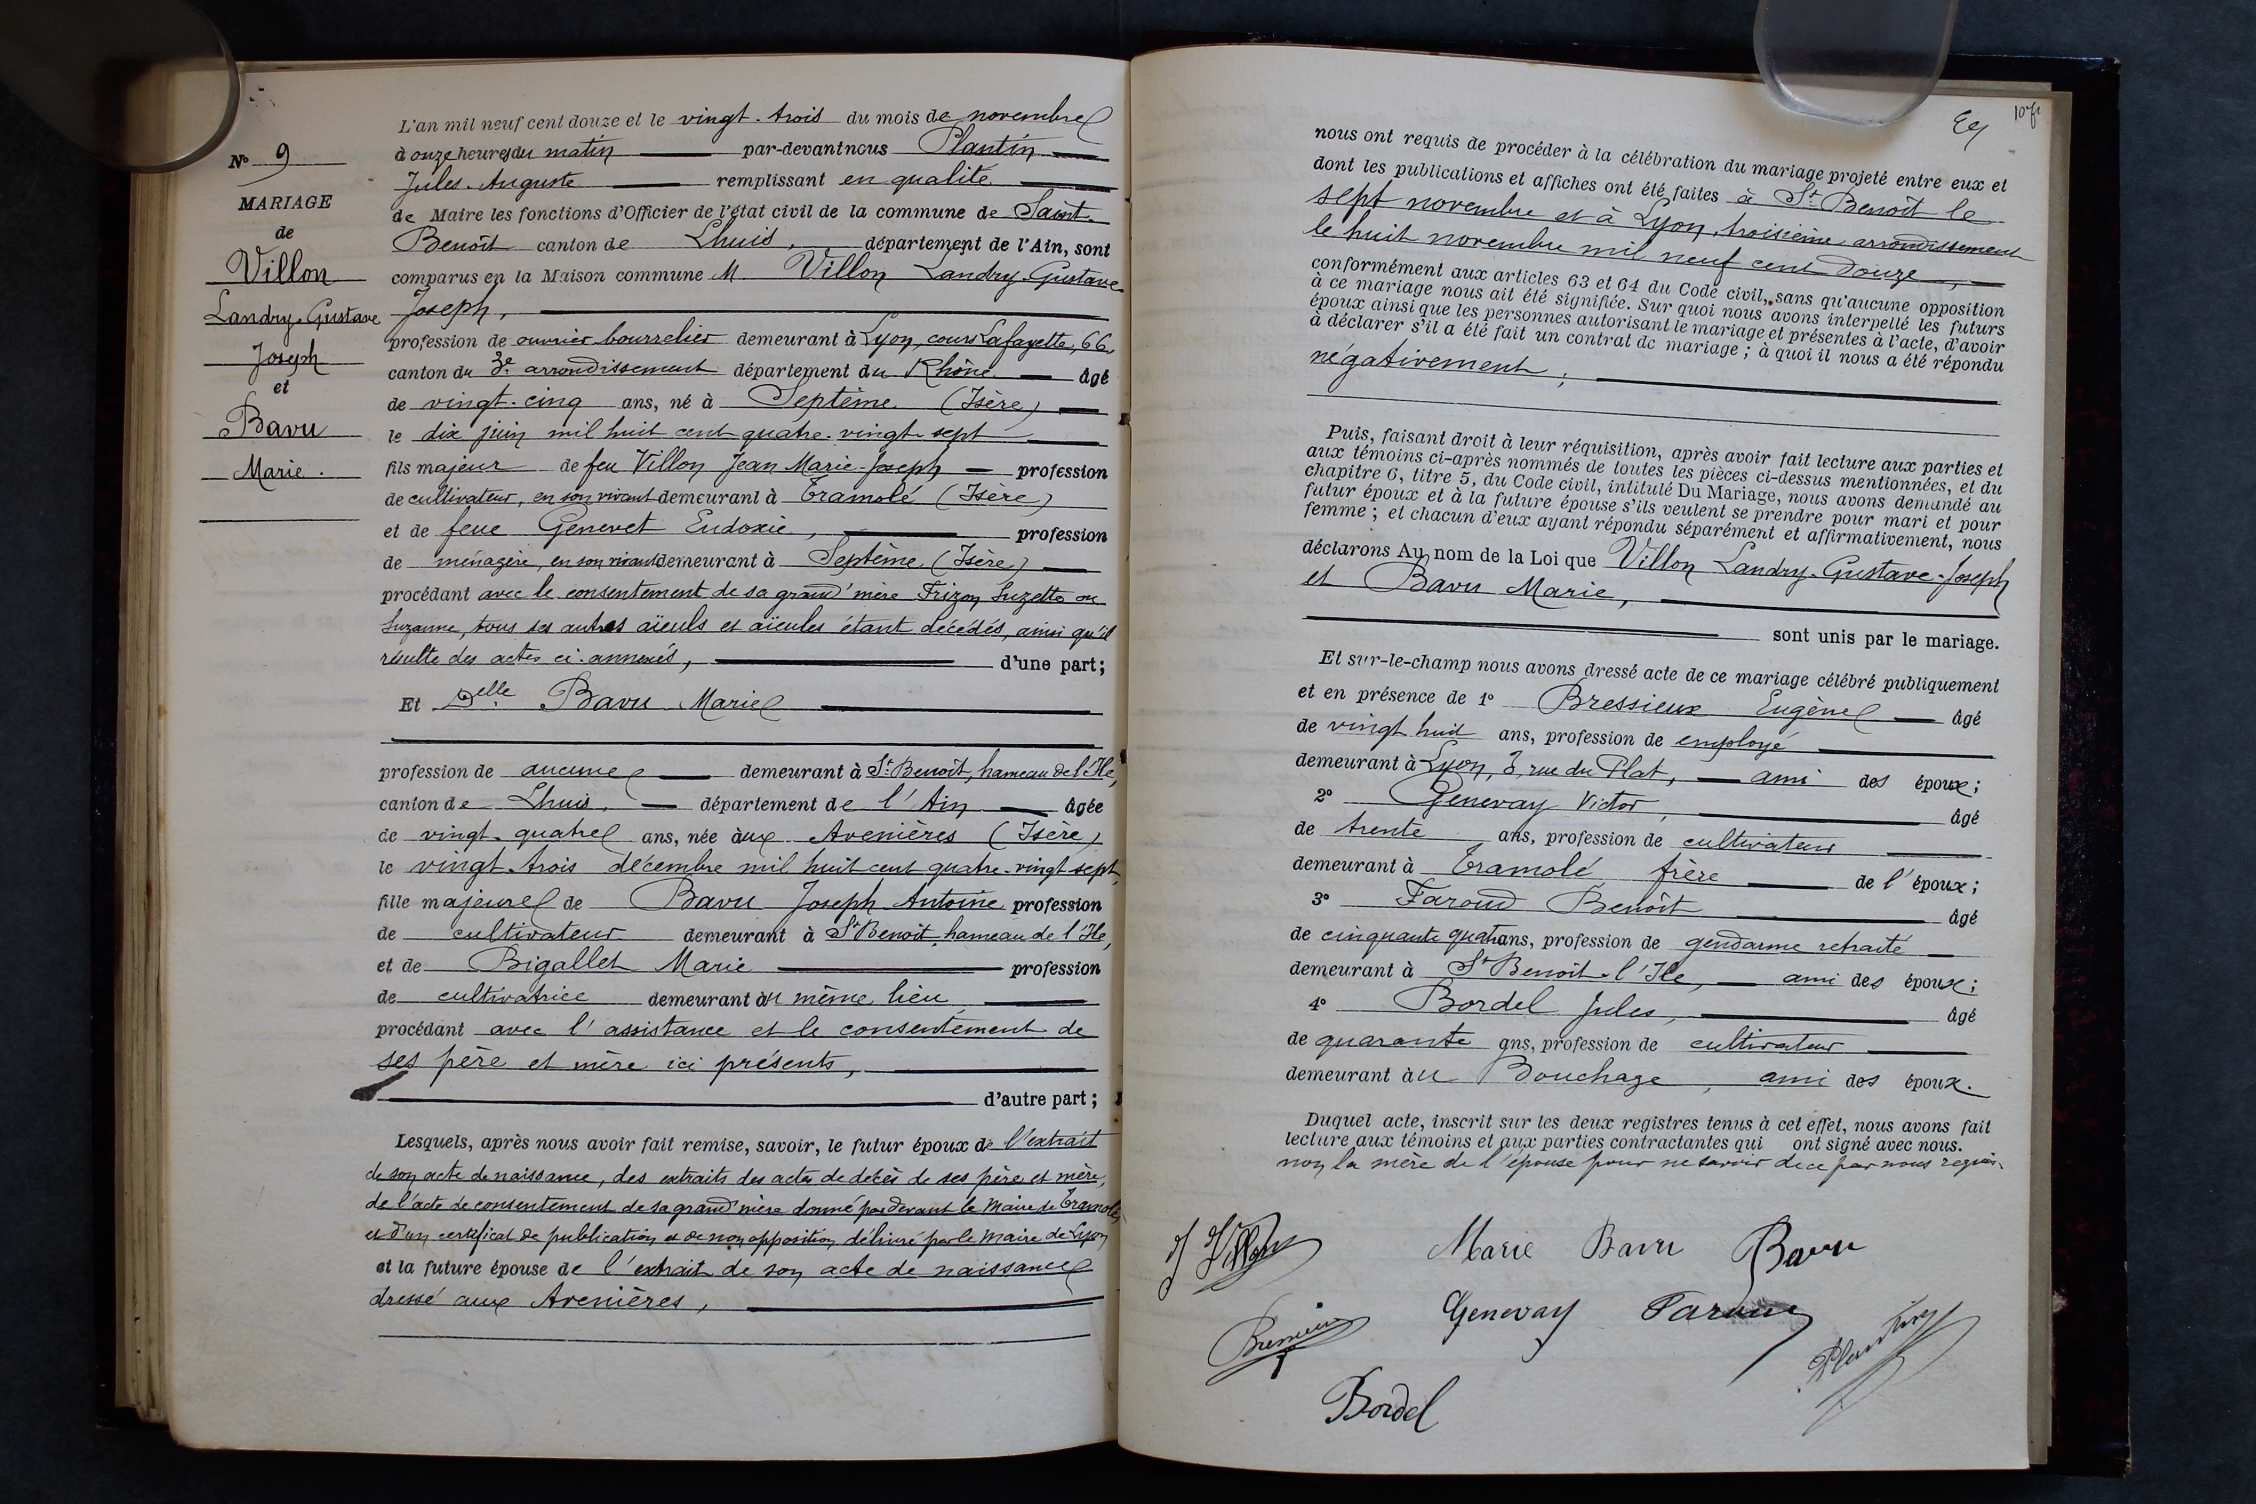 N° 9
MARIAGE
de
Villon
Landry-Gustave
Joseph
et
Bavu
Marie.
L'an mil neuf cent douze et le vingt-trois du mois de novembre
à onze heures du matin par-devant nous Plantin
Jules-Auguste remplissant en qualité
de Maire les fonctions d'Officier de l'état civil de la commune de Saint-
Benoît canton de Lhuis, département de l'Ain, sont
comparus en la Maison commune M. Villon Landry-Gustave-
Joseph,
profession de ouvrier bourrelier demeurant à Lyon, cours Lafayette, 66,
canton du 3e arrondissement département du Rhône âgé
de vingt-cinq ans, né à Septème (Isère)
le dix juin mil huit cent quatre-vingt-sept
fils majeur de feu Villon Jean Marie-Joseph profession
de cultivateur, en son vivant demeurant à Tramolé (Isère)
et de feue Genevet Eudoxie, profession
de ménagère, en son vivant demeurant à Septème (Isère)
procédant avec le consentement de sa grand'mère Frizon Suzette ou
Suzanne, tous ses autres aïeuls et aïeules étant décédés, ainsi qu'il
résulte des actes ci-annexés, d'une part;
Et Delle Bavu Marie
profession de aucune demeurant à St Benoît, hameau de l'Ile,
canton de Lhuis. département de l'Ain âgée
de vingt-quatre ans, née aux Avenières (Isère)
le vingt-trois décembre mil huit cent quatre-vingt sept,
fille majeure de Bavu Joseph Antoine profession
de cultivateur demeurant à St Benoît, hameau de l'Ile,
et de Bigallet Marie profession
de cultivatrice demeurant au même lieu
procédant avec l'assistance et le consentement de
ses père et mère ici présents,
d'autre part;
Lesquels, après nous avoir fait remise, savoir, le futur époux de l'extrait
de son acte de naissance, des extraits des actes de décès de ses père et mère,
de l'acte de consentement de sa grand'mère donné par devant le Maire de Tramolé,
et d'un certificat de publication et de non opposition délivré par le Maire de Lyon
et la future épouse de l'extrait de son acte de naissance
dressé aux Avenières,
nous ont requis de procéder à la célébration du mariage projeté entre eux et
dont les publications et affiches ont été faites à St Benoît le
sept novembre et à Lyon, troisième arrondissement
le huit novembre mil neuf cent douze,
conformément aux articles 63 et 64 du Code civil, sans qu'aucune opposition
à ce mariage nous ait été signifiée. Sur quoi nous avons interpellé les futurs
époux ainsi que les personnes autorisant le mariage et présentes à l'acte, d'avoir
à déclarer s'il a été fait un contrat de mariage; à quoi il nous a été répondu
négativement;
Puis, faisant droit à leur réquisition, après avoir fait lecture aux parties et
aux témoins ci-après nommés de toutes les pièces ci-dessus mentionnées, et du
chapitre 6, titre 5, du Code civil, intitulé Du Mariage, nous avons demandé au
futur époux et à la future épouse s'ils veulent se prendre pour mari et pour
femme; et chacun d'eux ayant répondu séparément et affirmativement, nous
déclarons Au nom de la Loi que Villon Landry-Gustave-Joseph
et Bavu Marie,
sont unis par le mariage.
Et sur-le-champ nous avons dressé acte de ce mariage célébré publiquement
et en présence de 1° Bressieux Eugène âgé
de vingt huit ans, profession de employé
demeurant à Lyon, 3, rue du Plat, ami des époux;
2° Genevay Victor, âgé
de trente ans, profession de cultivateur
demeurant à Tramolé frère de l'époux;
3° Faroud Benoît âgé
de cinquante quatre ans, profession de gendarme retraité
demeurant à St Benoît-l'Ile, ami des époux;
4° Bordel Jules, âgé
de quarante ans, profession de cultivateur
demeurant au Bouchage, ami des époux.
Duquel acte, inscrit sur les deux registres tenus à cet effet, nous avons fait
lecture aux témoins et aux parties contractantes qui ont signé avec nous.
non la mère de l'épouse pour ne savoir de ce par nous requis.
Villon Marie Bavu Bavu
Bressieux Genevay Faroud Plantin
Bordel